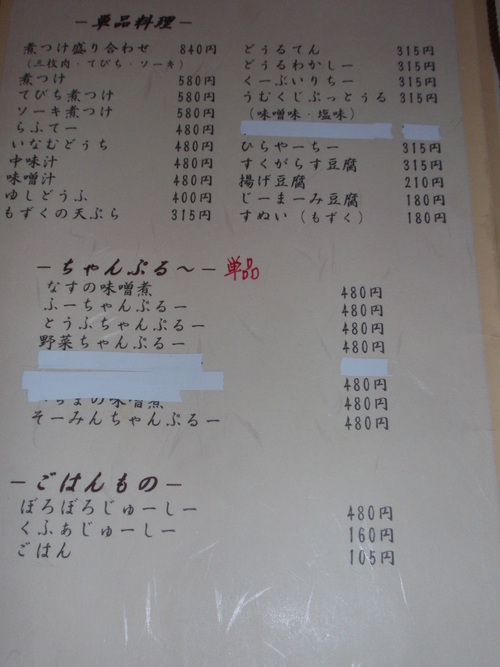 －単品料理－
煮つけ盛り合わせ 840円
（三枚肉・てびち・ソーキ）
煮つけ 580円
てびち煮つけ 580円
ソーキ煮つけ 580円
らふてー 480円
いなむどぅち 480円
中味汁 480円
味噌汁 480円
ゆしどうふ 400円
もずくの天ぷら 315円
どぅるてん 315円
どぅるわかしー 315円
くーぶいりちー 315円
うむくじぷっとぅる 315円
（味噌味・塩味）
ひらやーちー 315円
すくがらす豆腐 315円
揚げ豆腐 210円
じーまーみ豆腐 180円
すぬい（もずく） 180円
－ちゃんぷる～－ 単品
なすの味噌煮 480円
ふーちゃんぷるー 480円
とうふちゃんぷるー 480円
野菜ちゃんぷるー 480円
480円
の味噌煮 480円
そーみんちゃんぷるー 480円
－ごはんもの－
ぼろぼろじゅーしー 480円
くふぁじゅーしー 160円
ごはん 105円